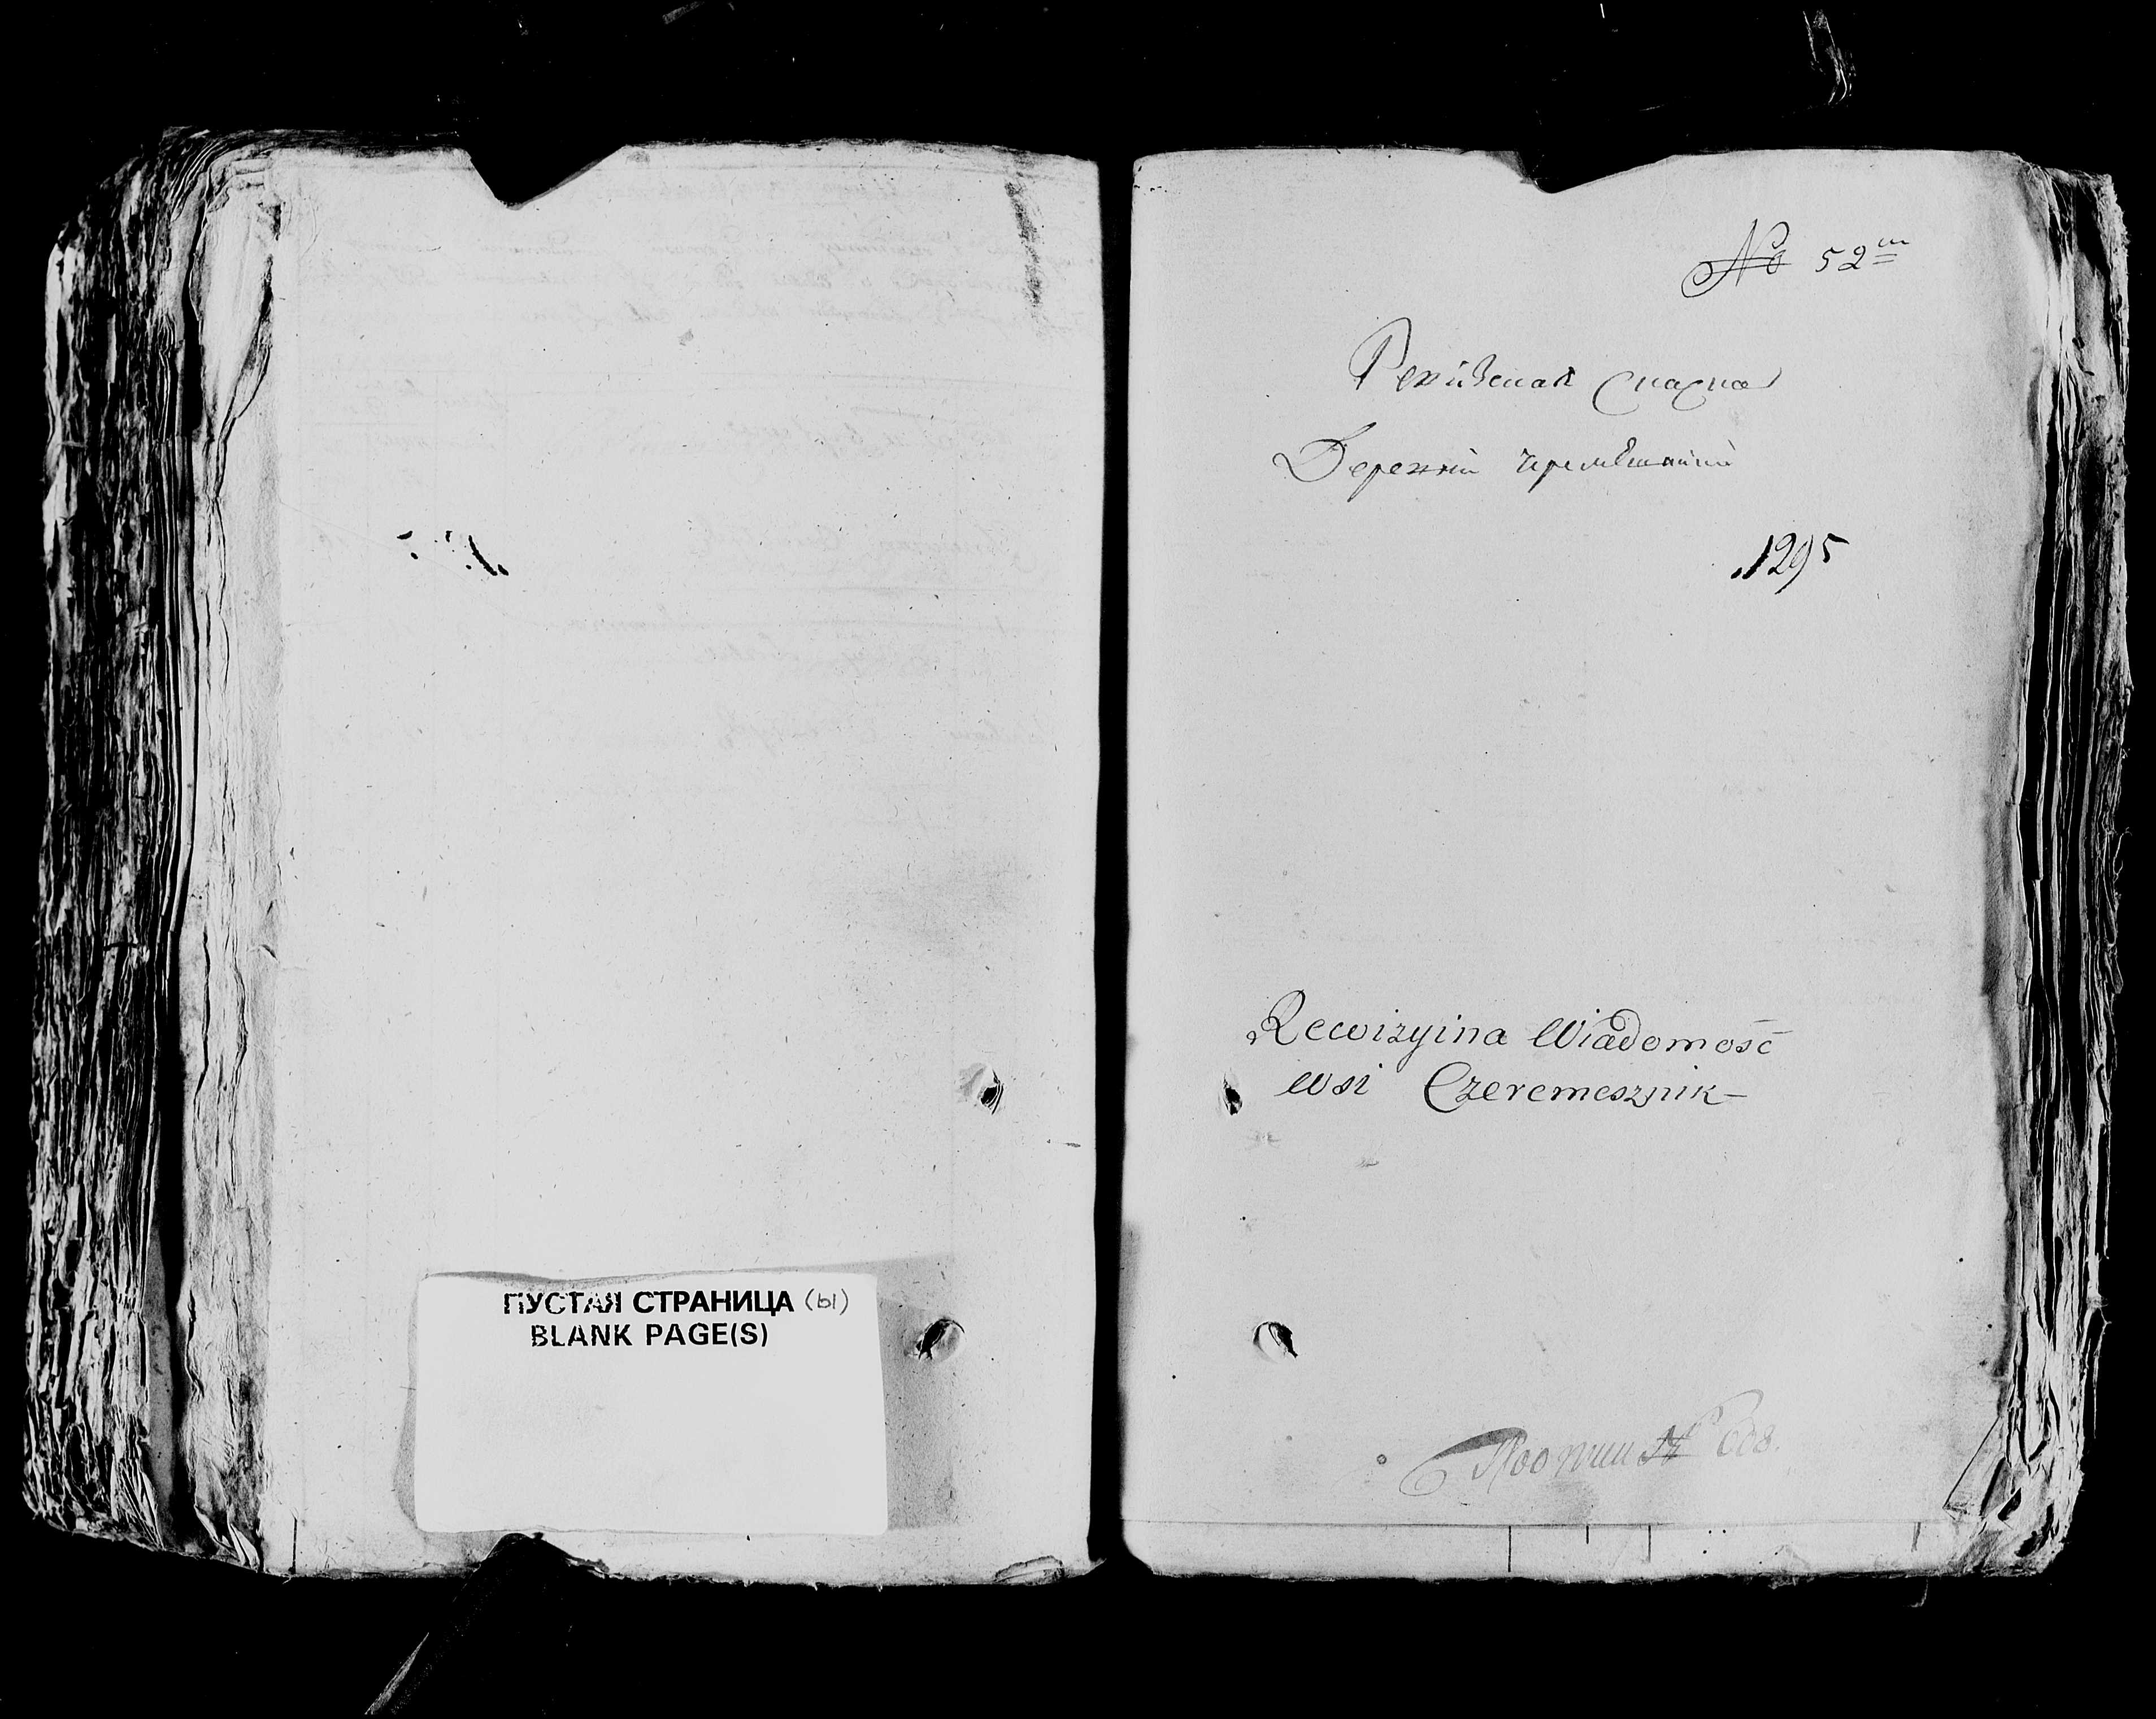 ПУСТАЯ СТРАНИЦА (ы)
BLANK PAGE(S)
№ 52
Ревизская Сказка
Деревни
1295
Rewizyina Wiadomość
wsi Czeremesznik